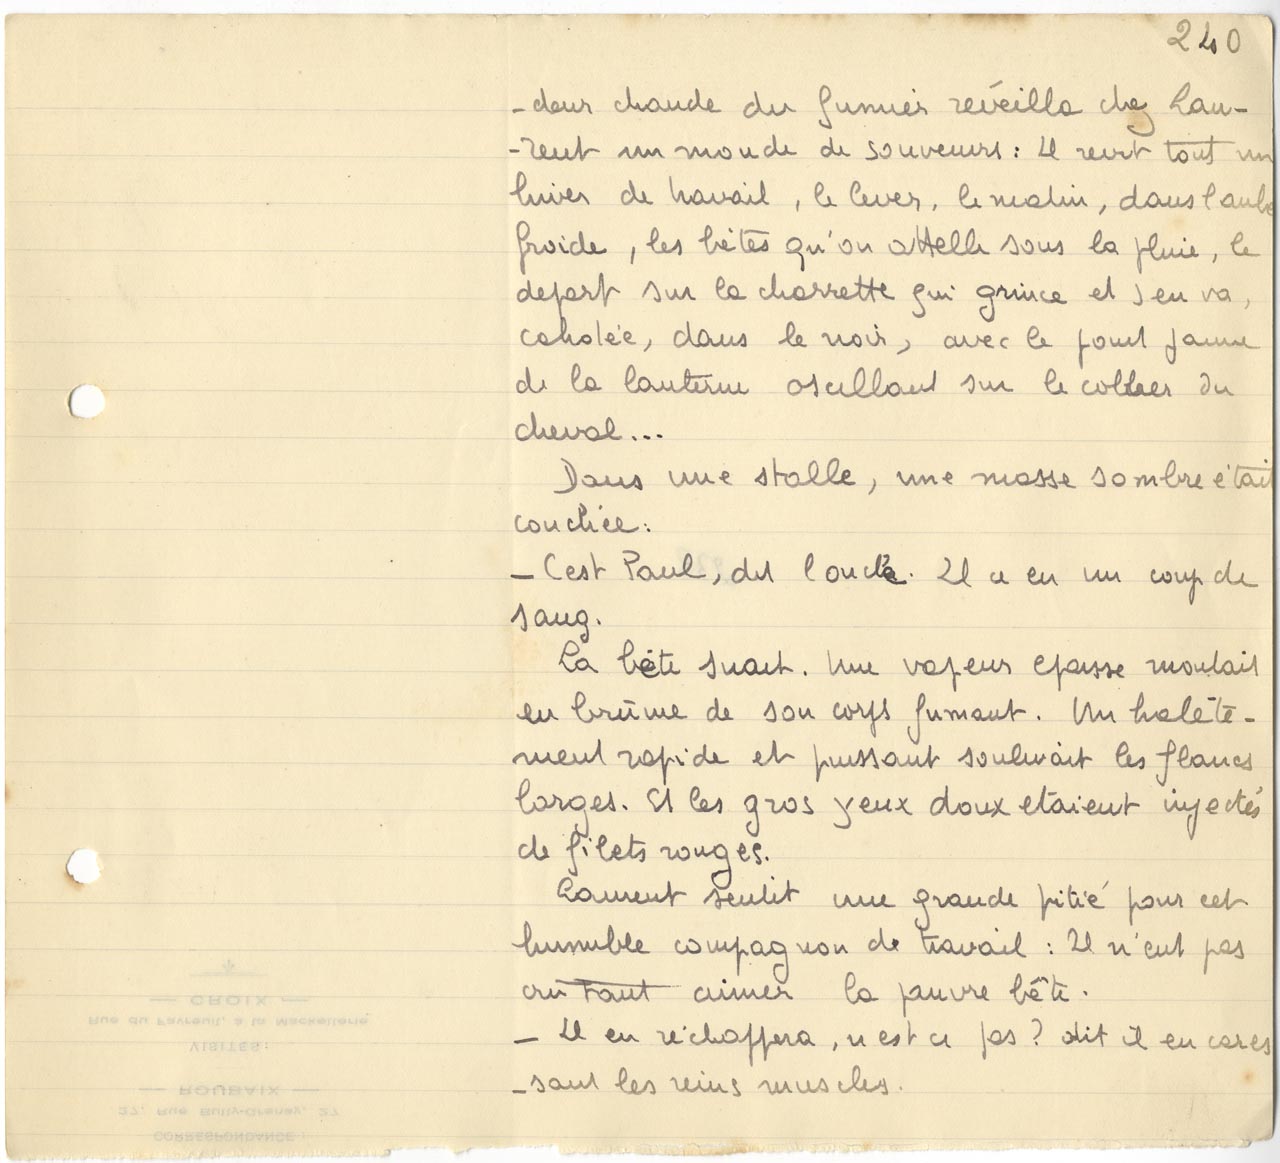 240
-deur chaude du fumier réveilla chez Lau-
-rent un monde de souvenirs : Il revit tout un
hiver de travail, le lever, le matin, dans l'aube
froide, les bêtes qu'on attelle sous la pluie, le
depart sur la charrette qui grince et s'en va,
cahotée, dans le noir, avec le point jaune
de la lanterne oscillant sur le collier du
cheval...
Dans une stalle, une masse sombre était
couchée.
- C'est Paul, dit l'oncle. Il a eu un coup de
sang.
La bête suait. Une vapeur epaisse montait
en brûme de son corps fumant. Un halète-
ment rapide et puissant soulevait les flancs
larges. Et les gros yeux doux etaient injectés
de filets rouges.
Laurent sentit une grande pitié pour cet
humble compagnon de travail : Il n'eut pas
cru tant aimer la pauvre bête.
- Il en réchappera, n'est ce pas ? dit il en cares
-sant les reins musclés.
CROIX
Rue du Favreuil, à la Mackellerie
VISITES :
ROUBAIX
27, Rue Bully-Grenay, 27
CORRESPONDANCE :